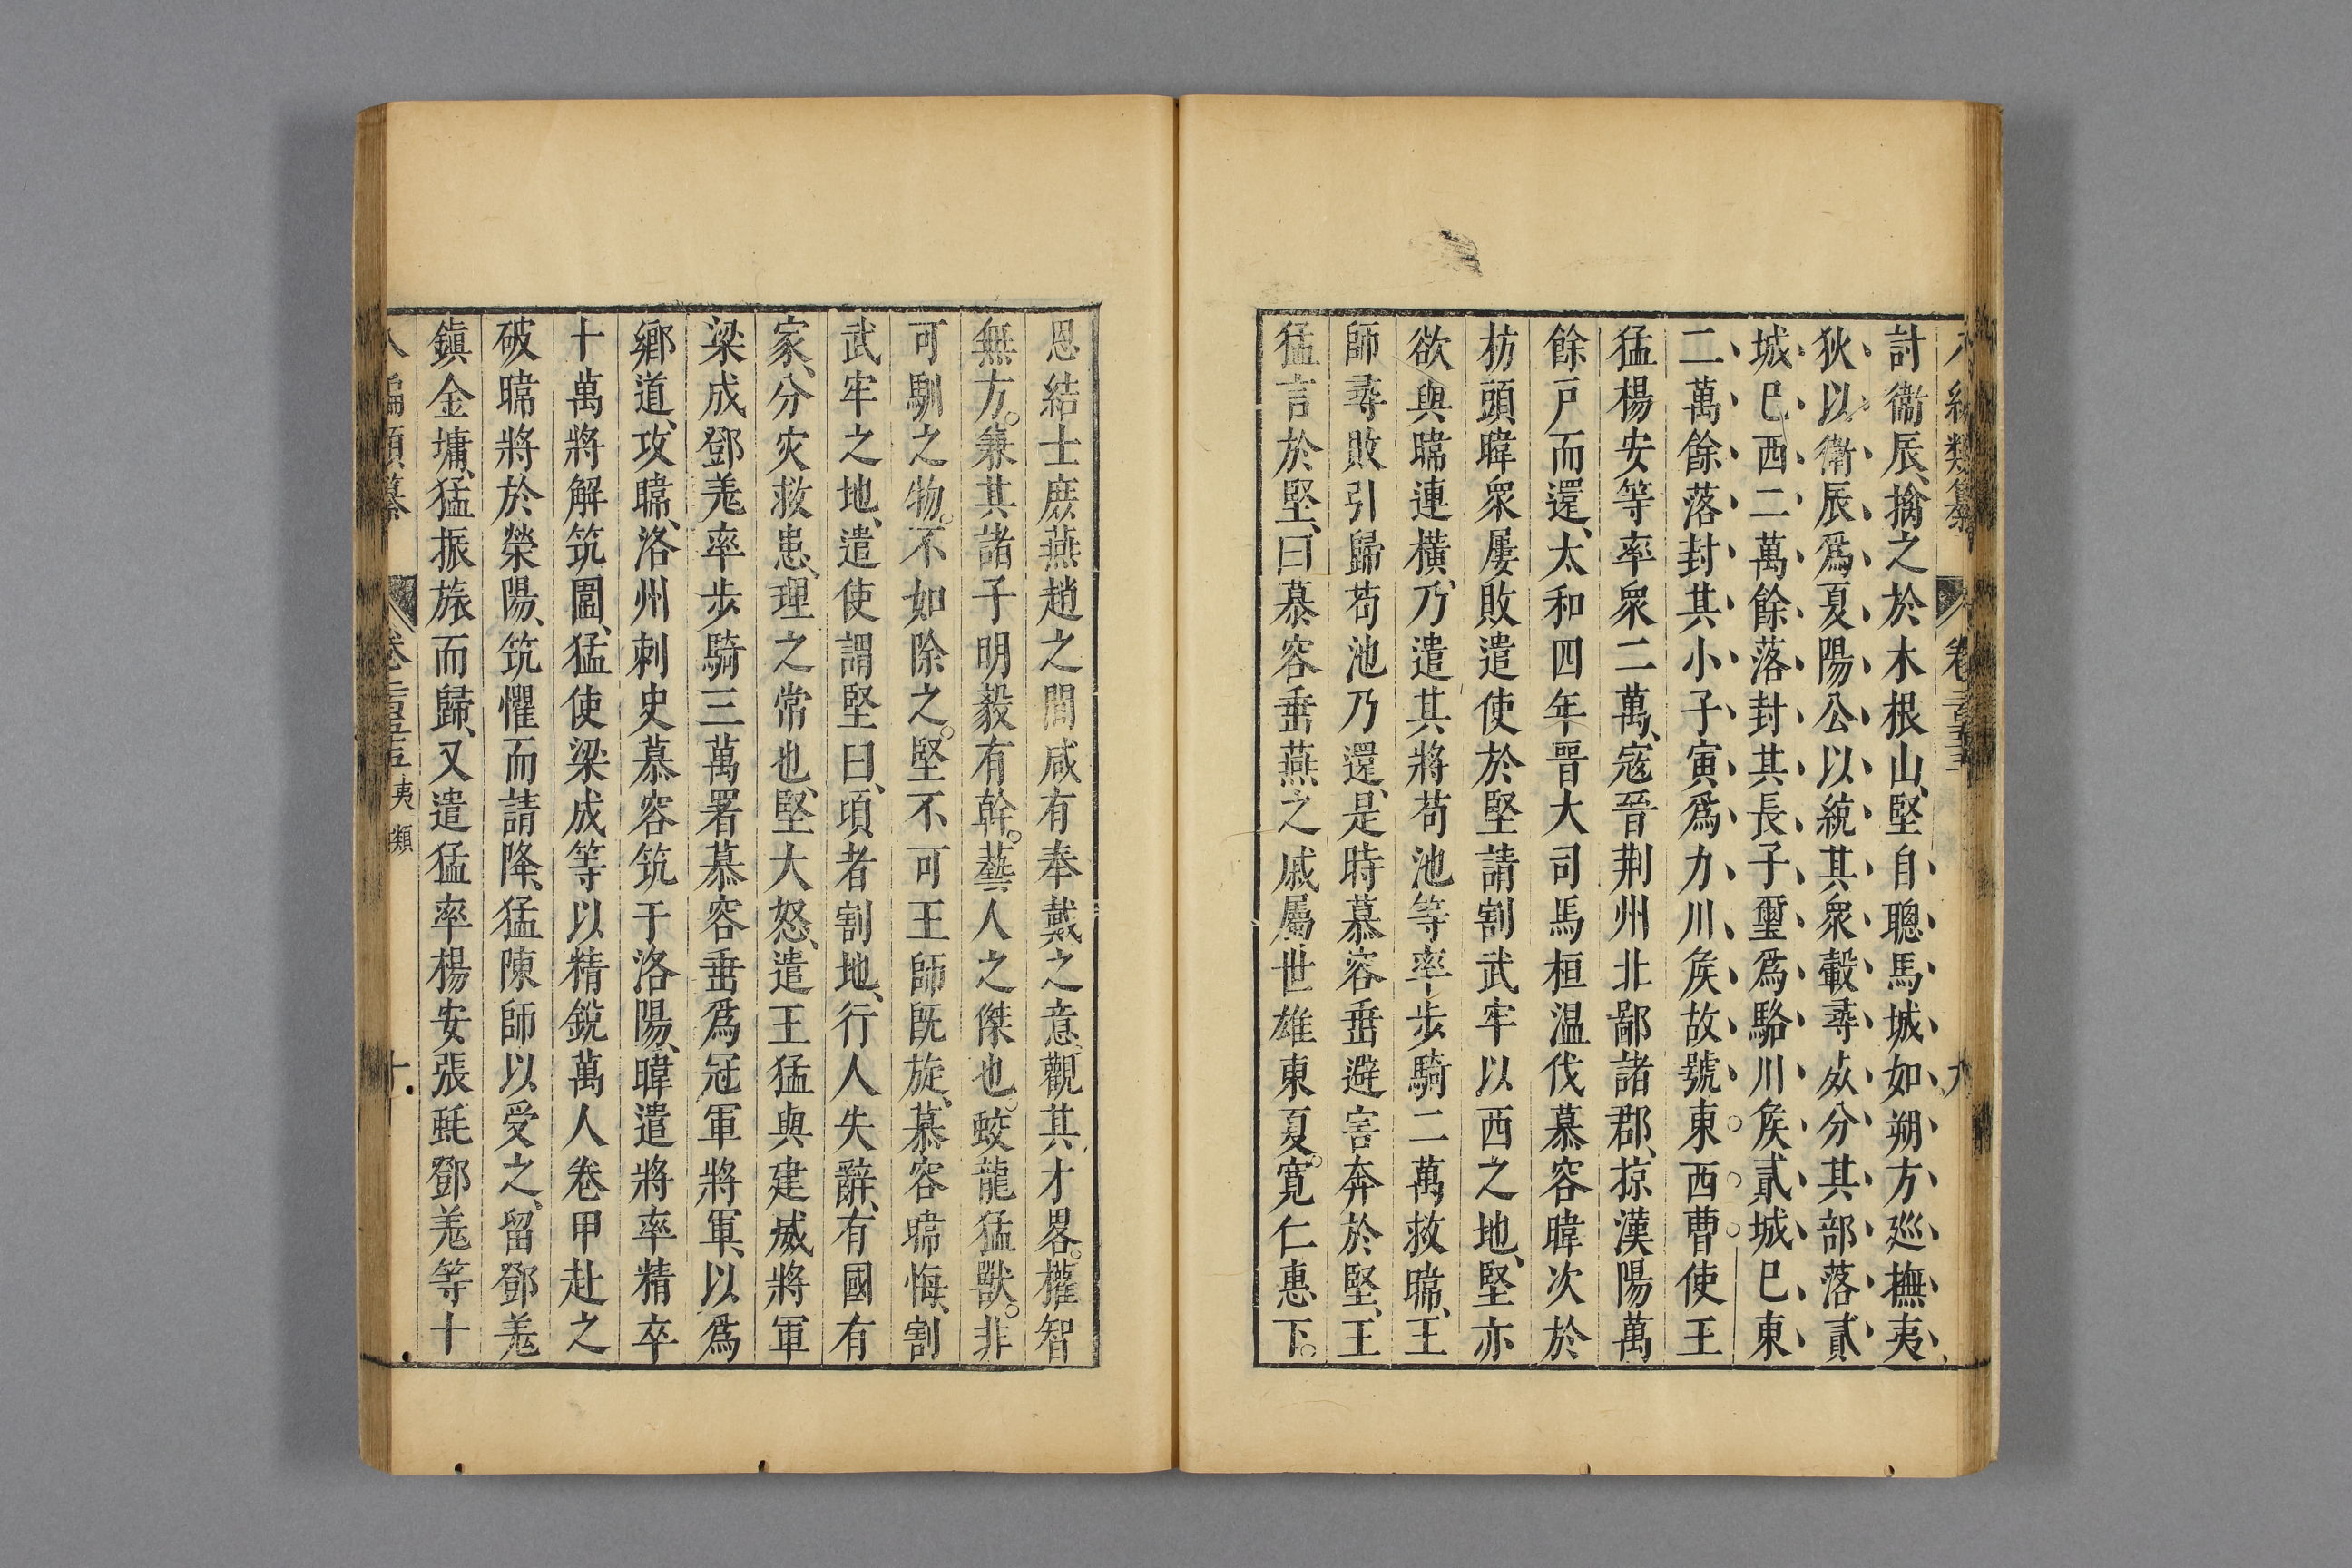 類纂
卷
九
討衞辰、擒之於木根山、堅自聰馬城如朔方巡撫夷
狄以衞辰爲夏陽公以統其衆轂尋死分其部落貳
城已西二萬餘落封其長子璽爲駱川矦貳城已東
二萬餘落封其小子寅爲力川矦故號東西曹使王
猛楊安等率衆二萬、寇晉荆州北鄙諸郡、掠漢陽萬
餘戸而還、太和四年晉大司馬桓温伐慕容暐次於
枋頭暐衆屢敗遣使於堅請割武牢以西之地、堅亦
欲與暐連橫、乃遣其將苟池等率步騎二萬救暐、王
師尋敗引歸苟池乃還、是時慕容垂避害奔於堅、王
猛言於堅、曰慕容垂燕之戚屬世雄東夏。寬仁惠下。
恩結士庶燕趙之間咸有奉戴之意、觀其才畧。權智
無方。兼其諸子明毅有幹。藝人之傑也。蛟龍猛獸。非
可馴之物。不如除之。堅不可王師既旋、慕容暐悔、割
武牢之地、遣使謂堅曰、頃者割地、行人失辭、有國有
家、分灾救患、理之常也、堅大怒、遣王猛與建威將軍
梁成鄧羌率步騎三萬署慕容垂爲冠軍將軍、以爲
鄉道、攻暐、洛州刺史慕容筑于洛陽、暐遣將率精卒
十萬將解筑圍、猛使梁成等以精銳萬人卷甲赴之
破暐將於滎陽、筑懼而請降、猛陳師以受之、留鄧羌
鎭金墉、猛振旅而歸、又遣猛率楊安張蚝鄧羌等十
編類纂
卷
夷類
十